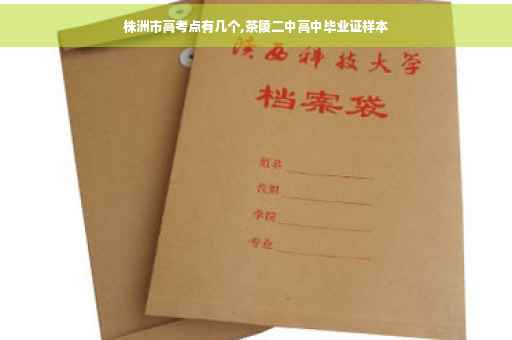 株洲市高考点有几个,茶陵二中高中毕业证样本
陕西科技大学
档案袋
姓名
学院
专业